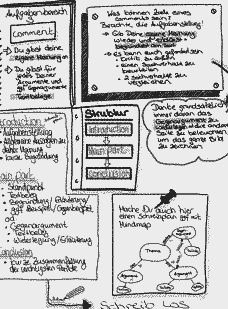 Aufgabenbereich
Comment
Du gibst deine
eigene Meinung an
Du gibst für
jedes Deiner
Argumente und
ggf Gegenargumente
Textbelege
Was können Ziele eines
comments sein?
Beachte die Aufgabenstellung!
Gib Deine eigene Meinung
wieder und
begründe den Text
Es kann auch gefordert sein
Kritik zu äußern
einen Sachverhalt zu
beurteilen
Sachverhalte zu
vergleichen
Struktur
Introduction
Main Part
Conclusion
Denke grundsätzlich
immer daran das
Gegenargument zu
andere
Seite zu beleuchten
um das ganze Bild
zu zeichnen!
Introduction
Aufgabenstellung
Aussagen zu
deiner Meinung
kurze Begründung
Main Part
Standpunkt
Textbeleg
Begründung / Erläuterung
ggf Beispiel / Gegenbeispiel
od.
Gegenargument
Textbeleg
Widerlegung / Erläuterung
Conclusion
kurze Zusammenfassung
der wichtigsten Punkte
Mache Dir auch hier
einen Schreibplan ggf mit
Mindmap
Thema
Argument
Argument
Schreib Los